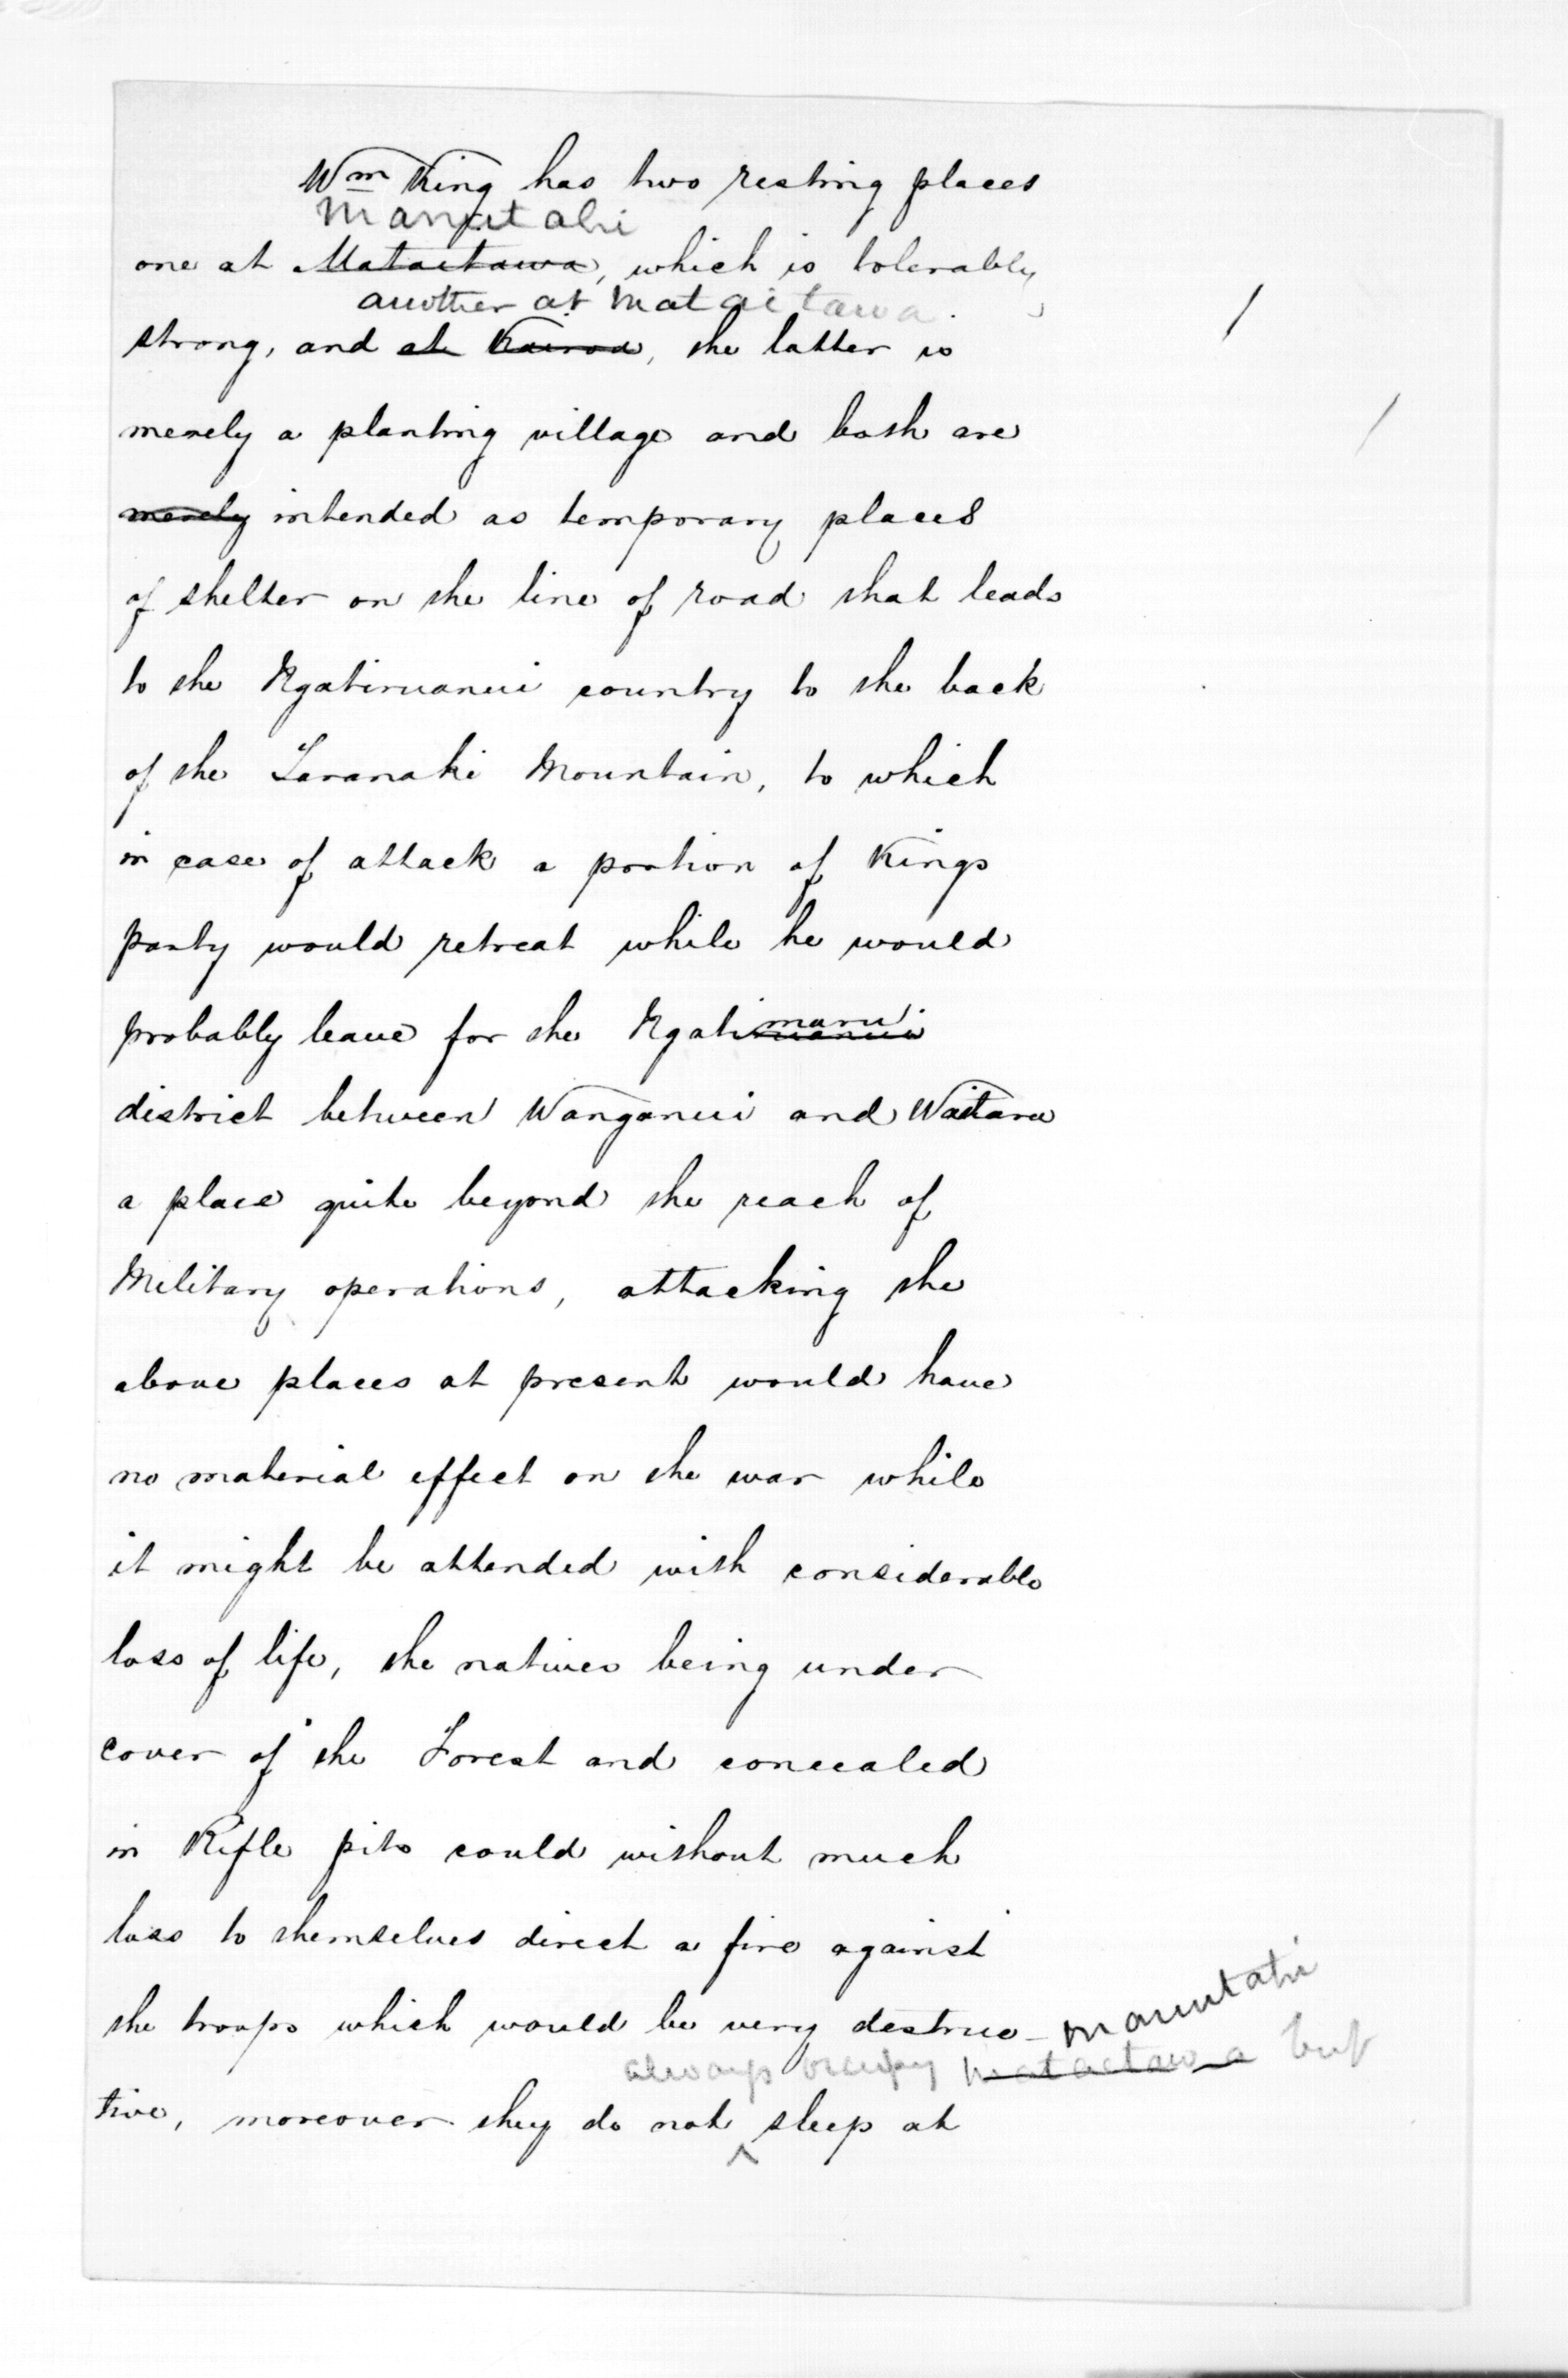 Wm King has two resting places
Manutahi
one at Mataitawa, which is tolerably
another at Mataitawa.
strong, and at Kairoa, the latter is
merely a planting village and both are
merely intended as temporary places
of shelter on the line of road that leads
to the Ngatiruanui country to the back
of the Taranaki Mountain, to which
in case of attack a portion of Kings
party would retreat while he would
maru
probably leave for the Ngatiruanui
district between Wanganui and Waitara
a place quite beyond the reach of
Military operations, attacking the
above places at present would have
no material effect on the war while
it might be attended with considerable
loss of life, the natives being under
cover of the Forest and concealed
in Rifle pits could without much
loss to themselves direct a fire against
the troops which would be very destruc- Manutahi
always occupy Mataitawa but
tive, moreover they do not ^ sleep at